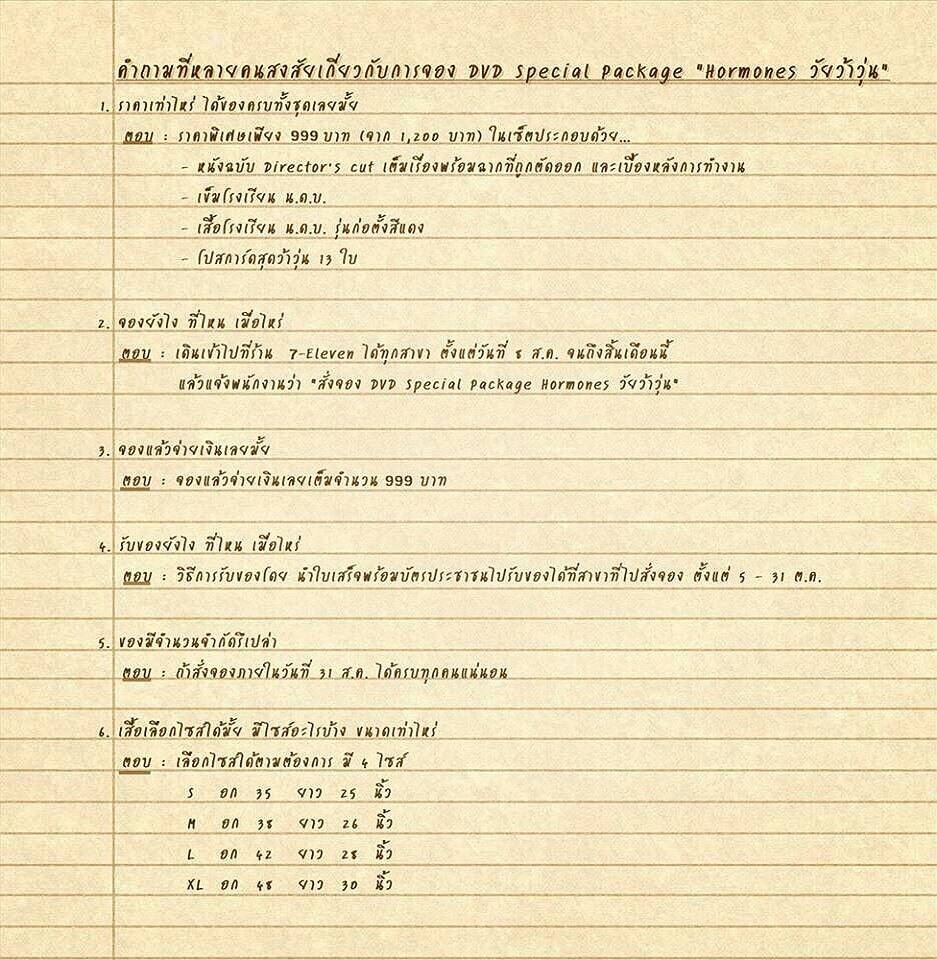 คำถามที่หลายคนสงสัยเกี่ยวกับการจอง DVD Special Package "Hormones วัยว้าวุ่น"
1. ราคาเท่าไหร่ ได้ของครบทั้งชุดเลยมั้ย
ตอบ : ราคาพิเศษเพียง 999 บาท (จาก 1,200 บาท) ในเซ็ตประกอบด้วย...
- หนังฉบับ Director's cut เต็มเรื่องพร้อมฉากที่ถูกตัดออก และเบื้องหลังการทำงาน
- เข็มโรงเรียน น.ด.บ.
- เสื้อโรงเรียน น.ด.บ. รุ่นก่อตั้งสีแดง
- โปสการ์ดสุดว้าวุ่น 13 ใบ
2. จองยังไง ที่ไหน เมื่อไหร่
ตอบ : เดินเข้าไปที่ร้าน 7-Eleven ได้ทุกสาขา ตั้งแต่วันที่ 8 ส.ค. จนถึงสิ้นเดือนนี้
แล้วแจ้งพนักงานว่า "สั่งจอง DVD Special Package Hormones วัยว้าวุ่น"
3. จองแล้วจ่ายเงินเลยมั้ย
ตอบ : จองแล้วจ่ายเงินเลยเต็มจำนวน 999 บาท
4. รับของยังไง ที่ไหน เมื่อไหร่
ตอบ : วิธีการรับของโดย นำใบเสร็จพร้อมบัตรประชาชนไปรับของได้ที่สาขาที่ไปสั่งจอง ตั้งแต่ 5 - 31 ต.ค.
5. ของมีจำนวนจำกัดรึเปล่า
ตอบ : ถ้าสั่งจองภายในวันที่ 31 ส.ค. ได้ครบทุกคนแน่นอน
6. เสื้อเลือกไซส์ได้มั้ย มีไซส์อะไรบ้าง ขนาดเท่าไหร่
ตอบ : เลือกไซส์ได้ตามต้องการ มี 4 ไซส์
S อก 35 ยาว 25 นิ้ว
M อก 38 ยาว 26 นิ้ว
L อก 42 ยาว 28 นิ้ว
XL อก 48 ยาว 30 นิ้ว